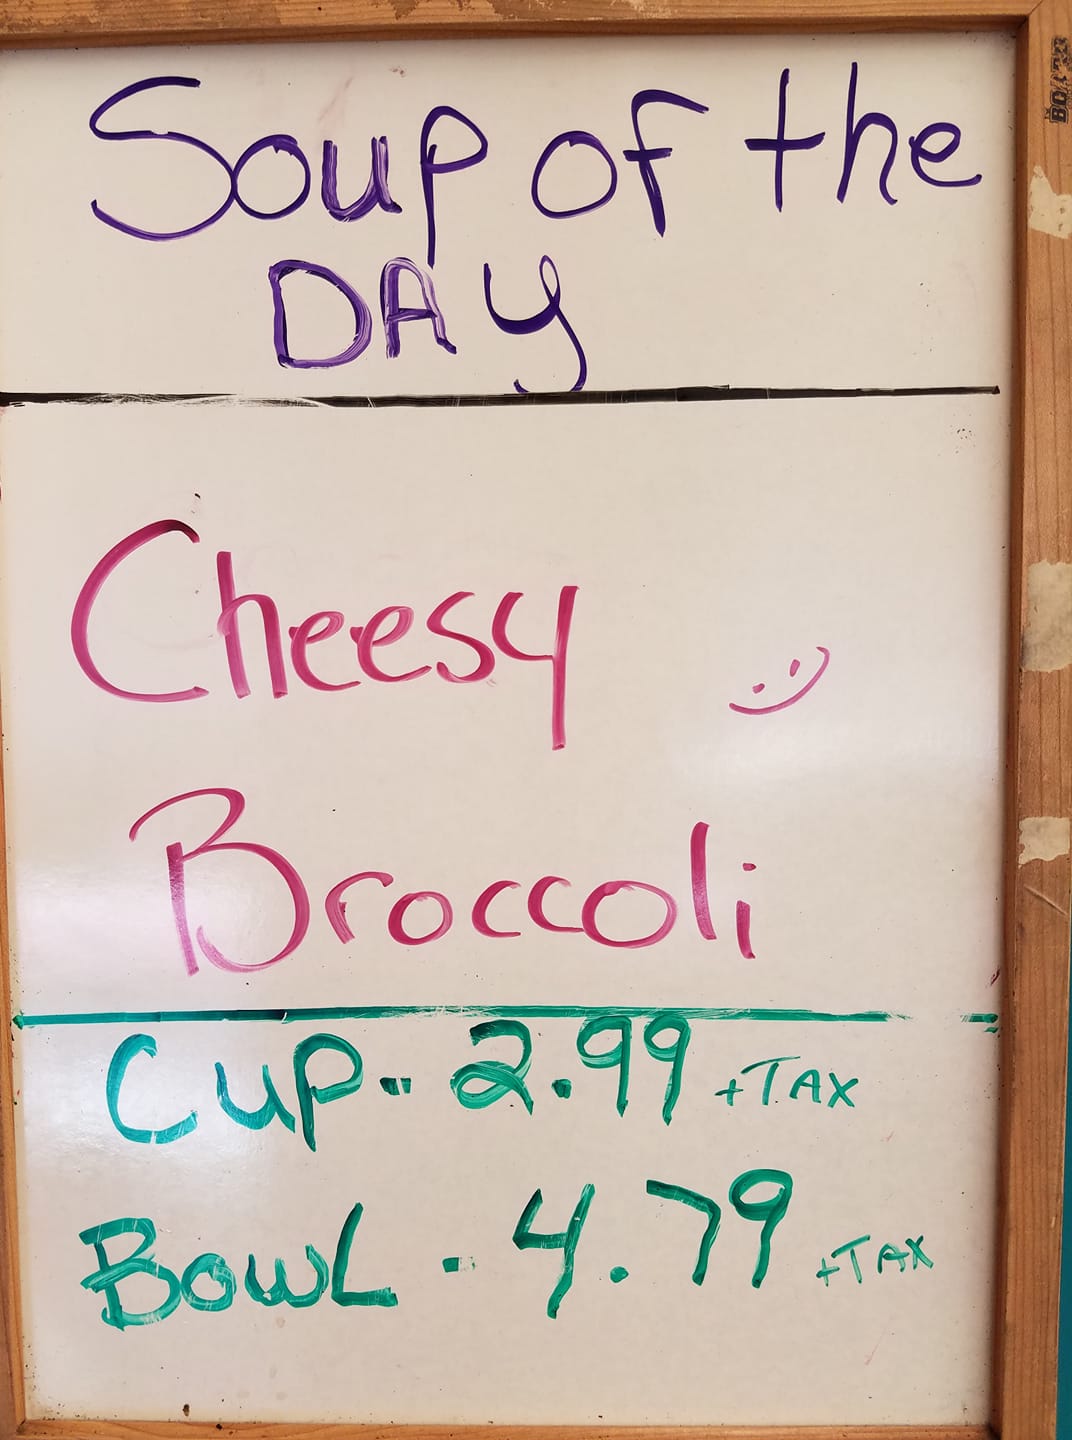 Soup of the
DAY
Cheesy
Broccoli
Cup - 2.99 +TAX
BowL - 4.79 +TAX